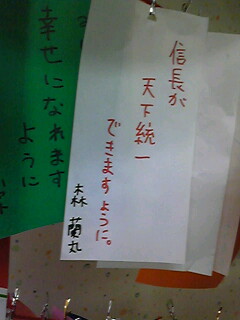 信長が
天下統一
できますように。
森 蘭丸
幸せになれます
ように